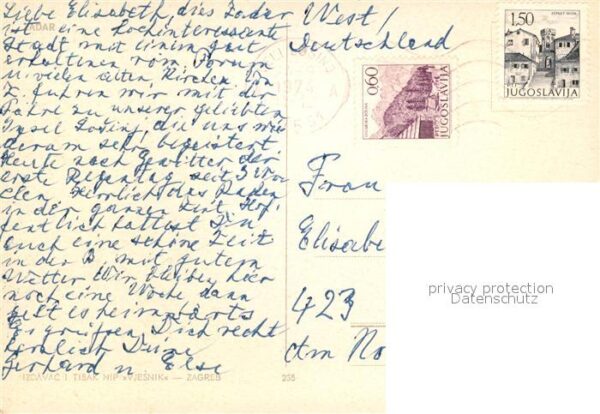 Liebe Elisabeth, dies Zadar
ist eine hochinteressante
Stadt mit einem gut
erhaltenen röm. Forum
u. vielen alten Kirchen. Von
Z. fuhren wir mit der
Fähre zu unserer geliebten
Insel Lošinj, die uns wie
derum sehr begeistert.
Heute nach Gewitter der
erste Regentag seit 3 Wo
chen. Herrlich das Baden
in der ganzen Zeit. Hof
fentlich hattest Du
auch eine schöne Zeit
in der B. mit gutem
Wetter. Wir bleiben hier
noch eine Woche dann
geht es heimwärts
Es grüssen Dich recht
herzlich Deine
Gerhard u Else
ADAR
IZDAVAČ I TISAK NIP »VJESNIK« — ZAGREB
255
West /
Deutschland
0.60
JUGOSLAVIJA
1.50
JUGOSLAVIJA
Frau
Elisabe
423
Am No
privacy protection
Datenschutz